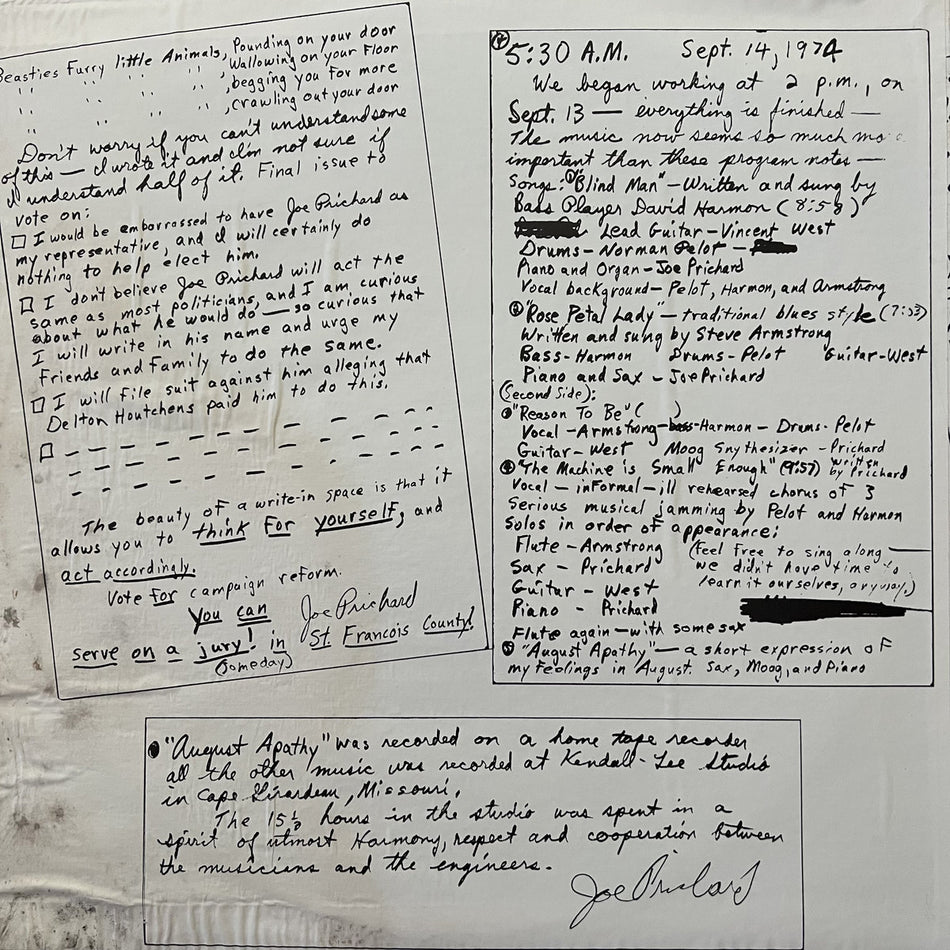 Beasties Furry little Animals, Pounding on your door
" " " " , Wallowing on your Floor
" " " " , begging you for more
" " " " , crawling out your door
Don't worry if you can't understand some
of this — I wrote it and I'm not sure if
I understand half of it. Final issue to
vote on:
□ I would be embarrassed to have Joe Prichard as
my representative, and I will certainly do
nothing to help elect him.
□ I don't believe Joe Prichard will act the
same as most politicians, and I am curious
about what he would do — so curious that
I will write in his name and urge my
Friends and Family to do the same.
□ I will file suit against him alleging that
Delton Houtchens paid him to do this.
□ — — — — — — — —
— — — — — — — —
— — — — — — — —
The beauty of a write-in space is that it
allows you to think for yourself, and
act accordingly.
Vote for campaign reform.
You can Joe Prichard
serve on a jury! in St. Francois County!
(someday)
④ 5:30 A.M. Sept. 14, 1974
We began working at 2 p.m., on
Sept. 13 — everything is finished —
The music now seems so much mo
important than these program notes —
Songs: ① "Blind Man" — Written and sung by
Bass Player David Harmon (8:58)
Lead Guitar - Vincent West
Drums - Norman Pelot —
Piano and Organ - Joe Prichard
Vocal background - Pelot, Harmon, and Armstrong
② "Rose Petal Lady" — traditional blues style (7:53)
Written and sung by Steve Armstrong
Bass - Harmon Drums - Pelot Guitar - West
Piano and Sax - Joe Prichard
(Second Side):
③ "Reason To Be" ( )
Vocal - Armstrong - bass - Harmon - Drums - Pelot
Guitar - West Moog Snythesizer - Prichard
④ "The Machine is Small Enough" (9:57) written by Prichard
Vocal - informal - ill rehearsed chorus of 3
Serious musical jamming by Pelot and Harmon
Solos in order of appearance:
Flute - Armstrong (Feel free to sing along —
Sax - Prichard we didn't have time to
Guitar - West learn it ourselves, anyway.)
Piano - Prichard
Flute again — with some sax
⑤ "August Apathy" — a short expression of
my Feelings in August. Sax, Moog, and Piano
"August Apathy" was recorded on a home tape recorder
all the other music was recorded at Kendall-Lee Studio
in Cape Girardeau, Missouri.
The 15 1/2 hours in the studio was spent in a
spirit of utmost Harmony, respect and cooperation between
the musicians and the engineers.
Joe Prichard